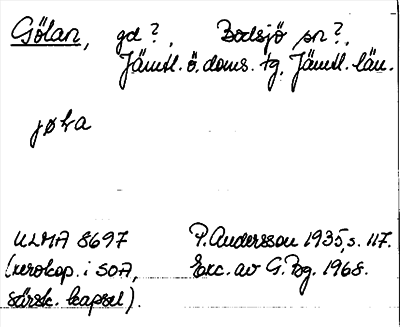 Gölan, gd?, Bodsjö sn?,
Jämtl. ö. doms. tg, Jämtl. län.
jøła
ULMA 8697 P. Andersson 1935, s. 117.
(xerokop. i SOA, Exc. av G. Bg. 1968.
särsk. kapsel).